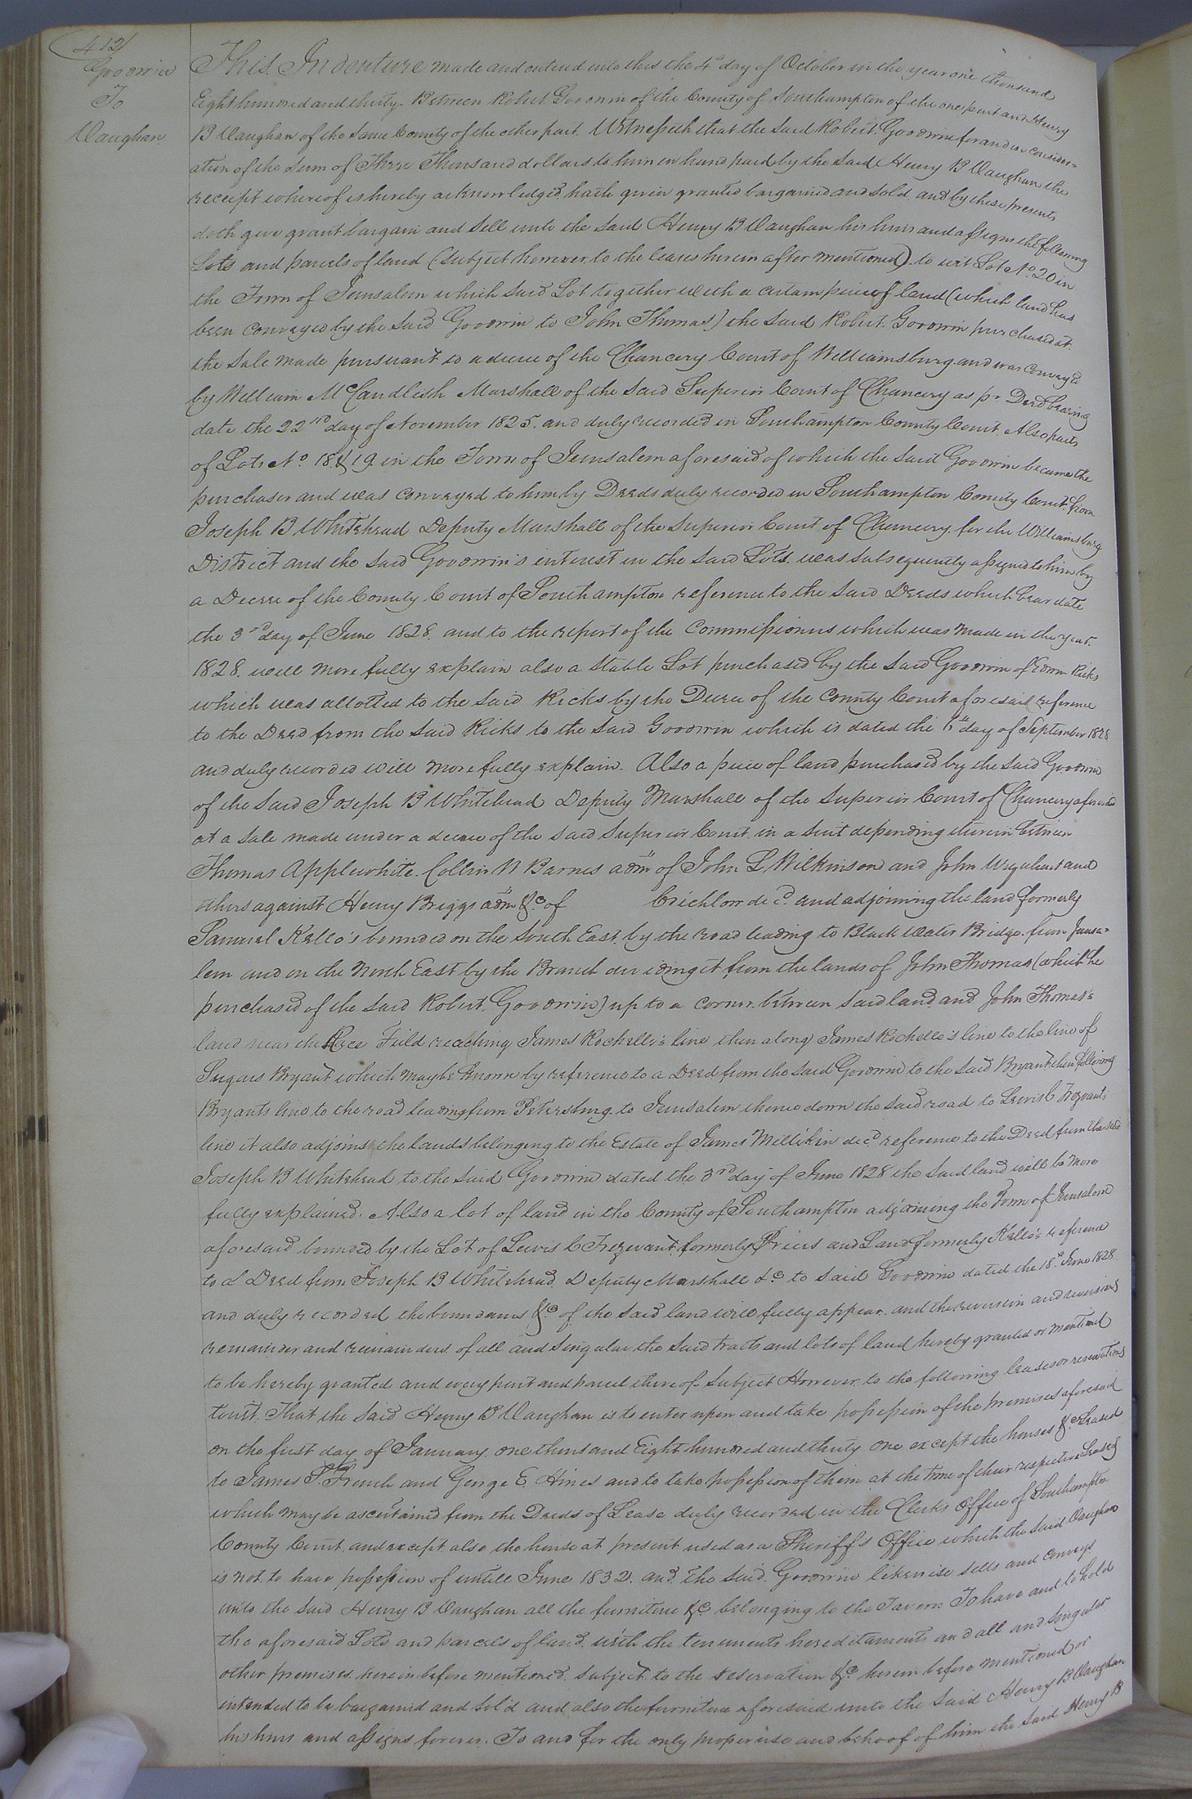 412
Goodwin
To
Vaughan
This Indenture made and entered into this the 4th day of October in the year one thousand
Eight hundred and thirty. Between Robert Goodwin of the County of Southampton of the one part and Henry
B Vaughan of the same County of the other part. Witnesseth that the said Robert Goodwin for and in consider=
ation of the Sum of Three Thousand dollars to him in hand paid by the said Henry B Vaughan the
receipt whereof is hereby acknowledged, hath given granted bargained and sold and by these presents
doth give grant bargain and sell unto the said Henry B Vaughan his heirs and assigns the following
Lots and parcels of land (subject however to the leases herein after mentioned) to wit Lot No 20 in
the Town of Jerusalem which said Lot together with a certain piece of land (which land has
been conveyed by the said Goodwin to John Thomas) the said Robert Goodwin purchased at
the sale made pursuant to a decree of the Chancery Court of Williamsburg and was conveyed
by William McCandlish Marshall of the said Superior Court of Chancery as pr Deed bearing
date the 22nd day of November 1825. and duly recorded in Southampton County Court. Also parts
of Lots No 18 & 19 in the Town of Jerusalem aforesaid of which the said Goodwin became the
purchaser and was conveyed to him by Deeds duly recorded in Southampton County Court from
Joseph B Whitehead Deputy Marshall of the Superior Court of Chancery for the Williamsburg
District and the said Goodwin's interest in the said Lots. was subsequently assigned to him by
a Decree of the County Court of Southampton reference to the said Deeds which bear date
the 3rd day of June 1828. and to the report of the Commissioners which was made in the year
1828. will more fully explain also a Stable Lot purchased by the said Goodwin of Ricks
which was allotted to the said Ricks by the Decree of the County Court aforesaid reference
to the Deed from the said Ricks to the said Goodwin which is dated the day of September 1828
and duly recorded will more fully explain. Also a piece of land purchased by the said Goodwin
of the said Joseph B Whitehead Deputy Marshall of the Superior Court of Chancery aforesaid
at a sale made under a decree of the said Superior Court in a suit depending therein between
Thomas Applewhite. Collin W Barnes adm of John L Wilkinson and John Urquhart and
others against Henry Briggs adm &c of Crichlow decd. and adjoining the land formerly
Samuel Kello's bounded on the South East by the road leading to Black Water Bridge. from Jerusa=
lem and on the North East by the Branch dividing it from the lands of John Thomas (which he
purchased of the said Robert Goodwin) up to a corner between said land and John Thomas's
land near the Race Field reaching James Rochelle's line then along James Rochelle's line to the line of
Sugars Bryant which may be known by reference to a Deed from the said Goodwin to the said Bryant then following
Bryants line to the road leading from Petersburg to Jerusalem thence down the said road to Lewis C Trezvants
line it also adjoins the lands belonging to the Estate of James Millikin decd reference to the Deed from the said
Joseph B Whitehead to the said Goodwin dated the 3rd day of June 1828 the said land will be more
fully explained. Also a lot of land in the County of Southampton adjoining the Town of Jerusalem
aforesaid bounded by the Lot of Lewis C Trezevant formerly Prices and Land formerly Kello's reference
to a Deed from Joseph B Whitehead Deputy Marshall &c to said Goodwin dated the 18th June 1828
and duly recorded the boundaries &c of the said land will fully appear. and the reversion and reversions
remainder and remainders of all and singular the said tracts and lots of land hereby granted or mentioned
to be hereby granted and every part and parcel thereof. Subject However to the following leases or reservations
to wit. That the said Henry B Vaughan is to enter upon and take possession of the premises aforesaid
on the first day of January one thousand Eight hundred and thirty one except the houses &c Leased
to James S French and George E Hines and to take possession of them at the time of their respective Leases
which may be ascertained from the Deeds of Lease duly recorded in the Clerks Office of Southampton
County Court. and except also the house at present used as a Sheriff's Office which the said Vaughan
is not to have possession of untill June 1832. and the said Goodwin likewise sells and conveys
unto the said Henry B Vaughan all the furniture &c belonging to the Tavern To have and to hold
the aforesaid Lots and parcels of land. with the tenements hereditaments and all and singular
other premises herein before mentioned. subject to the reservation &c herein before mentioned or
intended to be bargained and sold and also the furniture aforesaid unto the said Henry B Vaughan
his heirs and assigns forever. To and for the only proper use and behoof of him the said Henry B